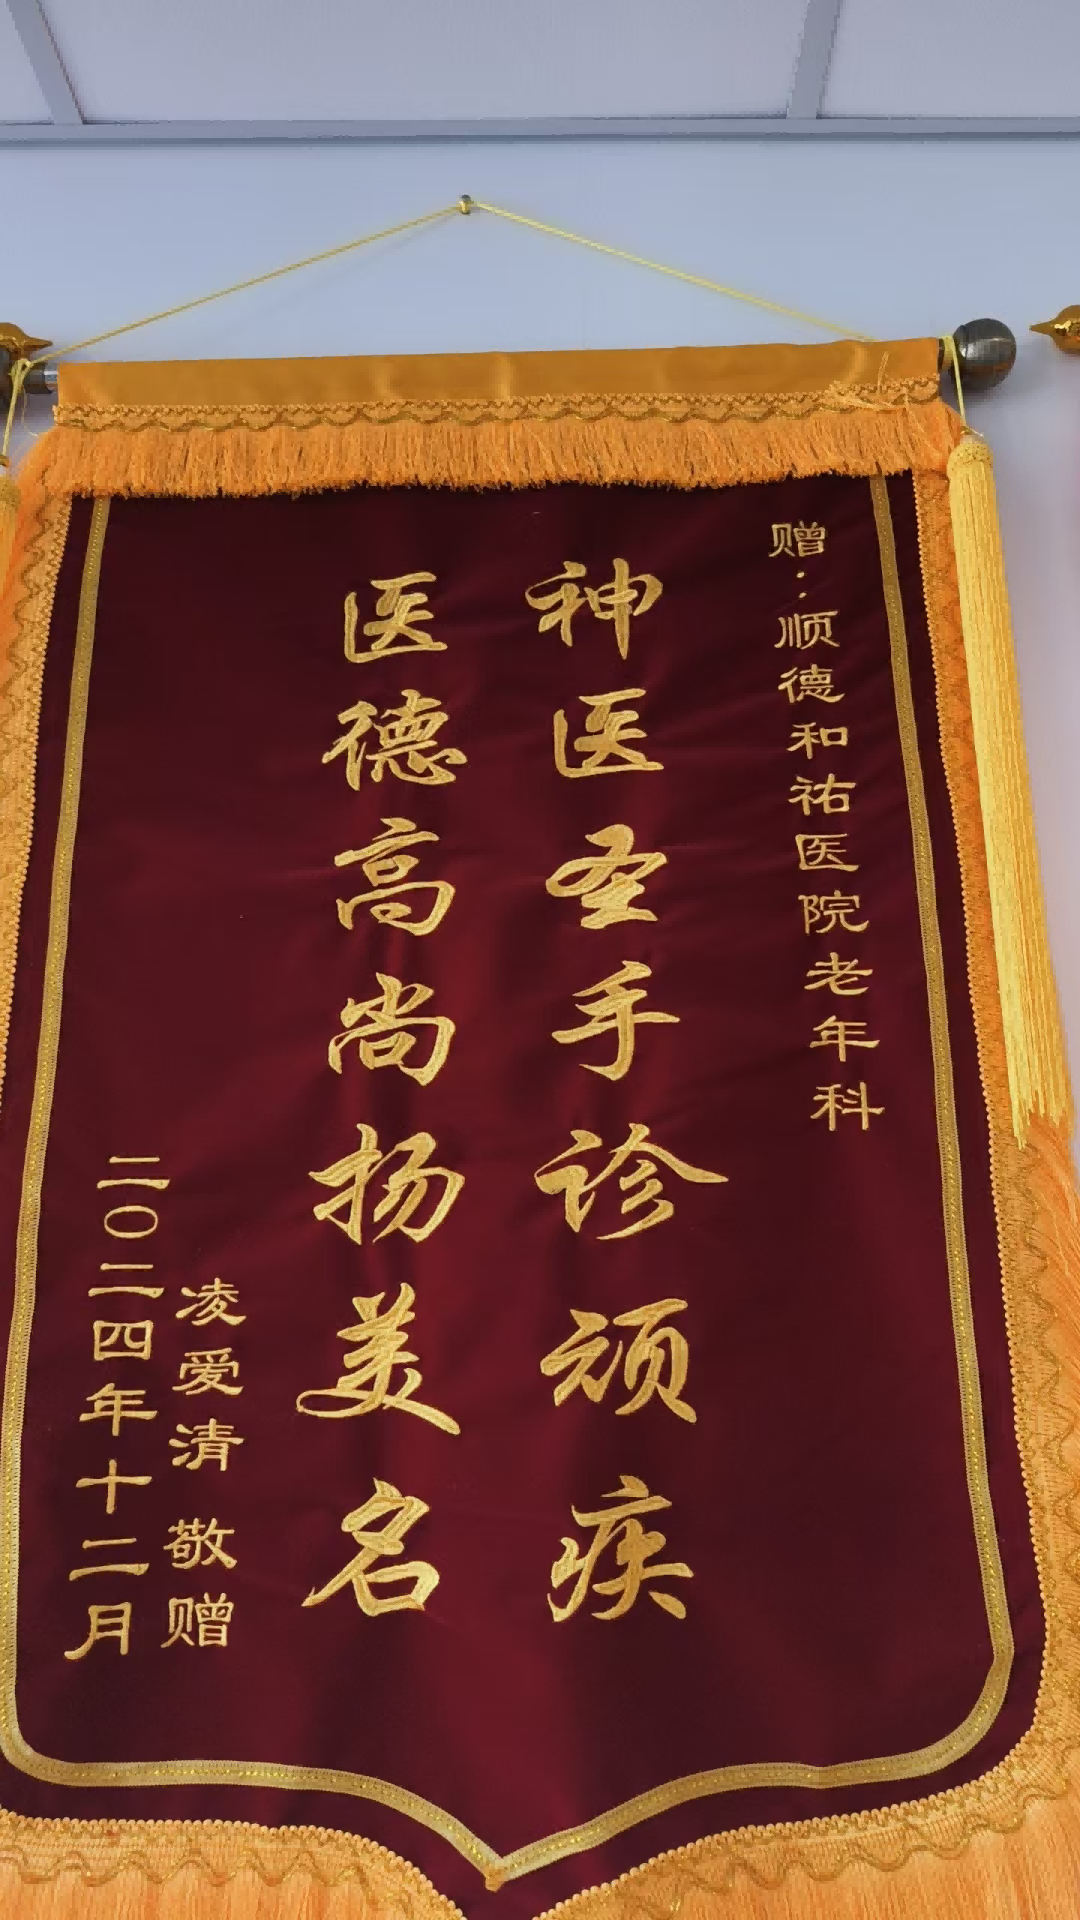 赠：顺德和祐医院老年科
神医圣手诊顽疾
医德高尚扬美名
凌爱清 敬赠
二〇二四年十二月